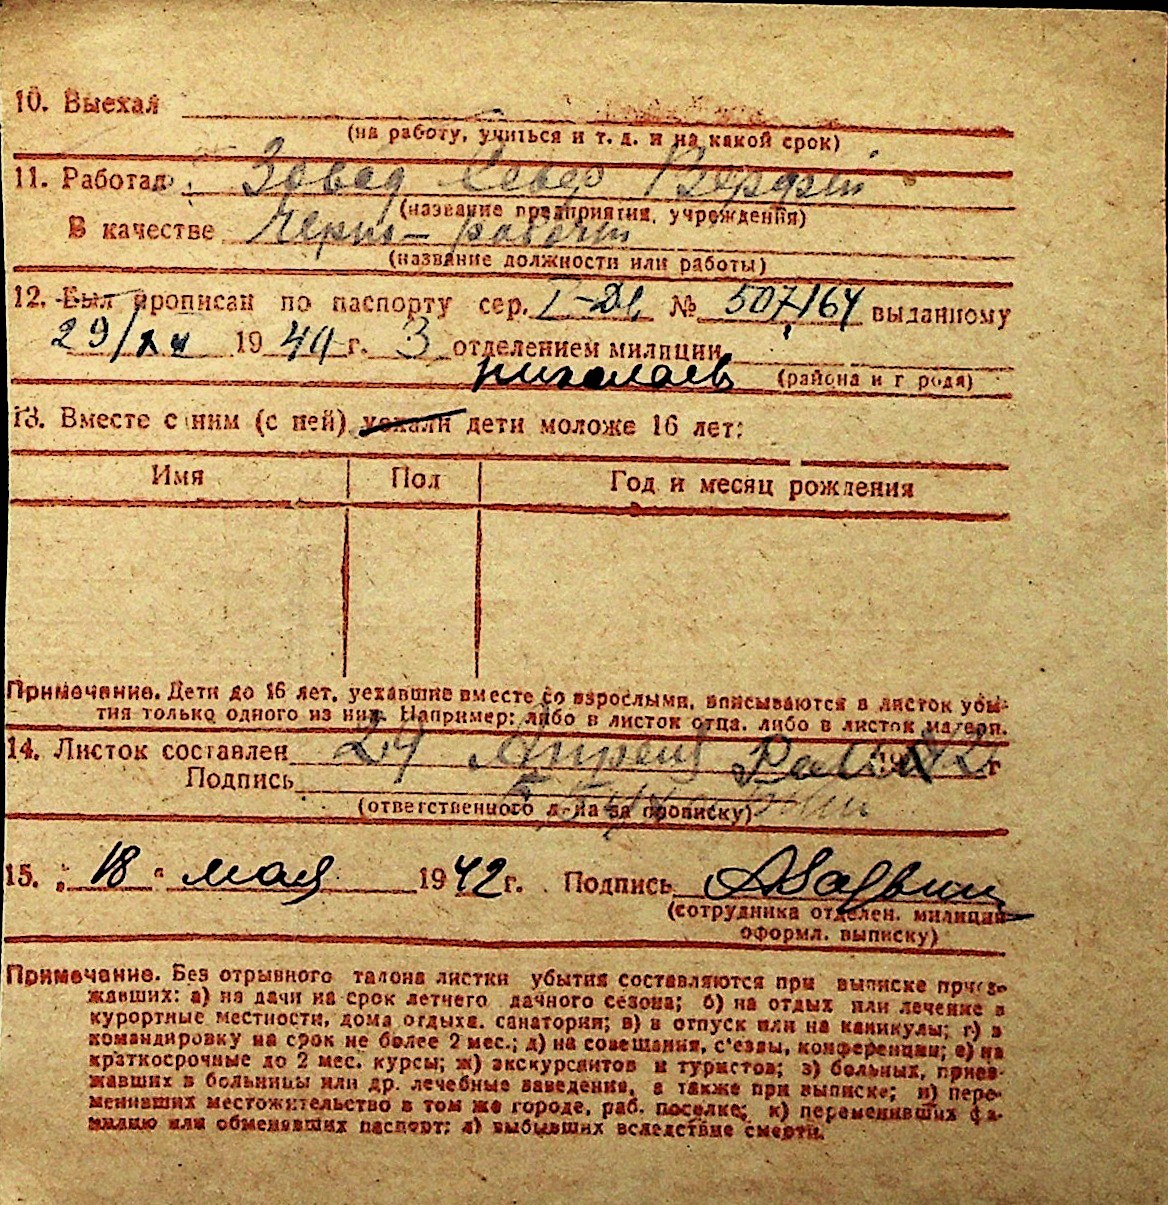 10. Выехал
(на работу, учиться и т. д. и на какой срок)
11. Работал Завод Север Верфь
(название предприятия, учреждения)
В качестве Черно-рабочий
(название должности или работы)
12. Был прописан по паспорту сер. № 507164 выданному
29/XII 1940 г. 3 отделением милиции
Николаев (района и города)
13. Вместе с ним (с ней) уехали дети моложе 16 лет:
Имя Пол Год и месяц рождения
Примечание. Дети до 16 лет, уехавшие вместе со взрослыми, вписываются в листок убы-
тия только одного из них. Например: либо в листок отца, либо в листок матери.
14. Листок составлен 24 Апреля 1942 г
Подпись
(ответственного л-ца за прописку)
15. „18 “ мая 1942 г. Подпись
(сотрудника отделен. милиции
оформл. выписку)
Примечание. Без отрывного талона листки убытия составляются при выписке приез-
жавших: а) на дачи на срок летнего дачного сезона; б) на отдых или лечение в
курортные местности, дома отдыха, санатории; в) в отпуск или на каникулы; г) в
командировку на срок не более 2 мес.; д) на совещания, с'езды, конференции; е) на
краткосрочные до 2 мес. курсы; ж) экскурсантов и туристов; з) больных, приез-
жавших в больницы или др. лечебные заведения, а также при выписке; и) пере-
менивших местожительство в том же городе, раб. поселке; к) переменивших фа-
милию или обменявших паспорт; л) выбывших вследствие смерти.